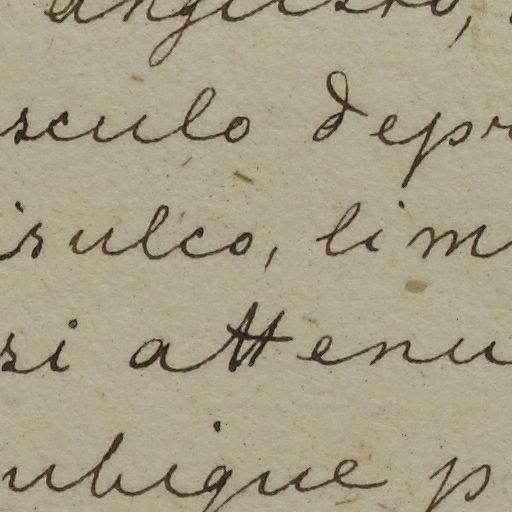 angusto,
sculo depr
isulco, lim
si attenu
ubique p